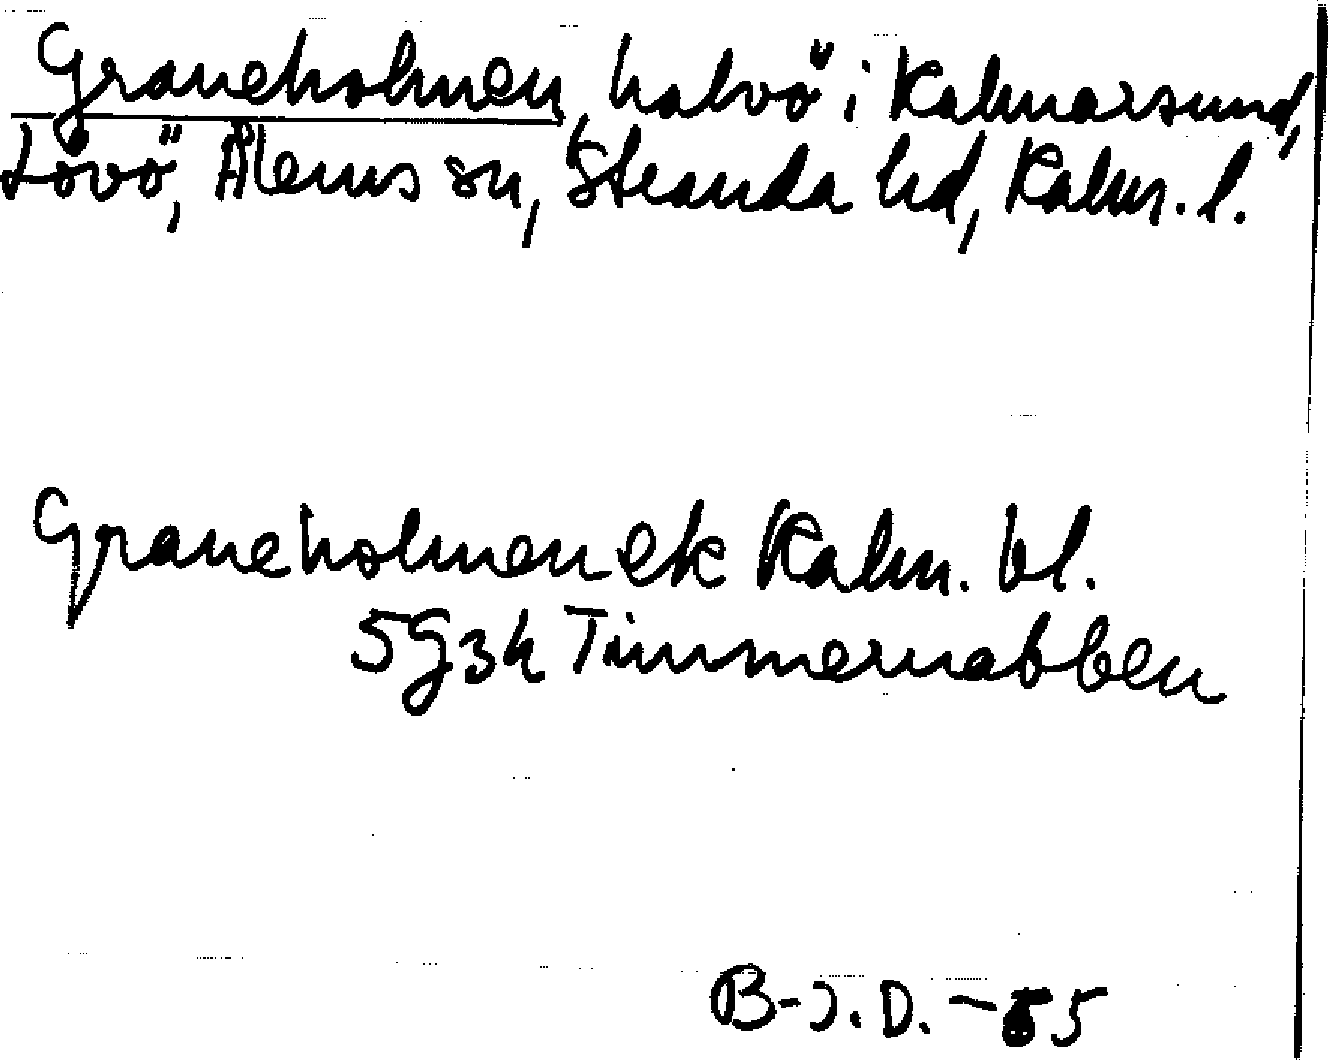 Graneholmen, halvö i Kalmarsund,
Lövö, Ålems sn, Stranda hd, Kalm. l.
Graneholmen ek Kalm. bl.
5G3h Timmernabben
B-J.D. -55